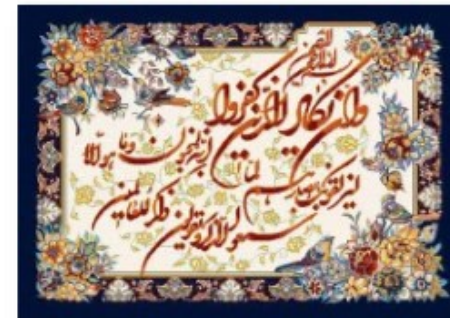 بسم الله
الرحمن الرحیم
وان یکاد الذین کفروا
لیزلقونک بابصارهم لما
سمعوا الذکر ویقولون
انه لمجنون وما هو الا
ذکر للعالمین